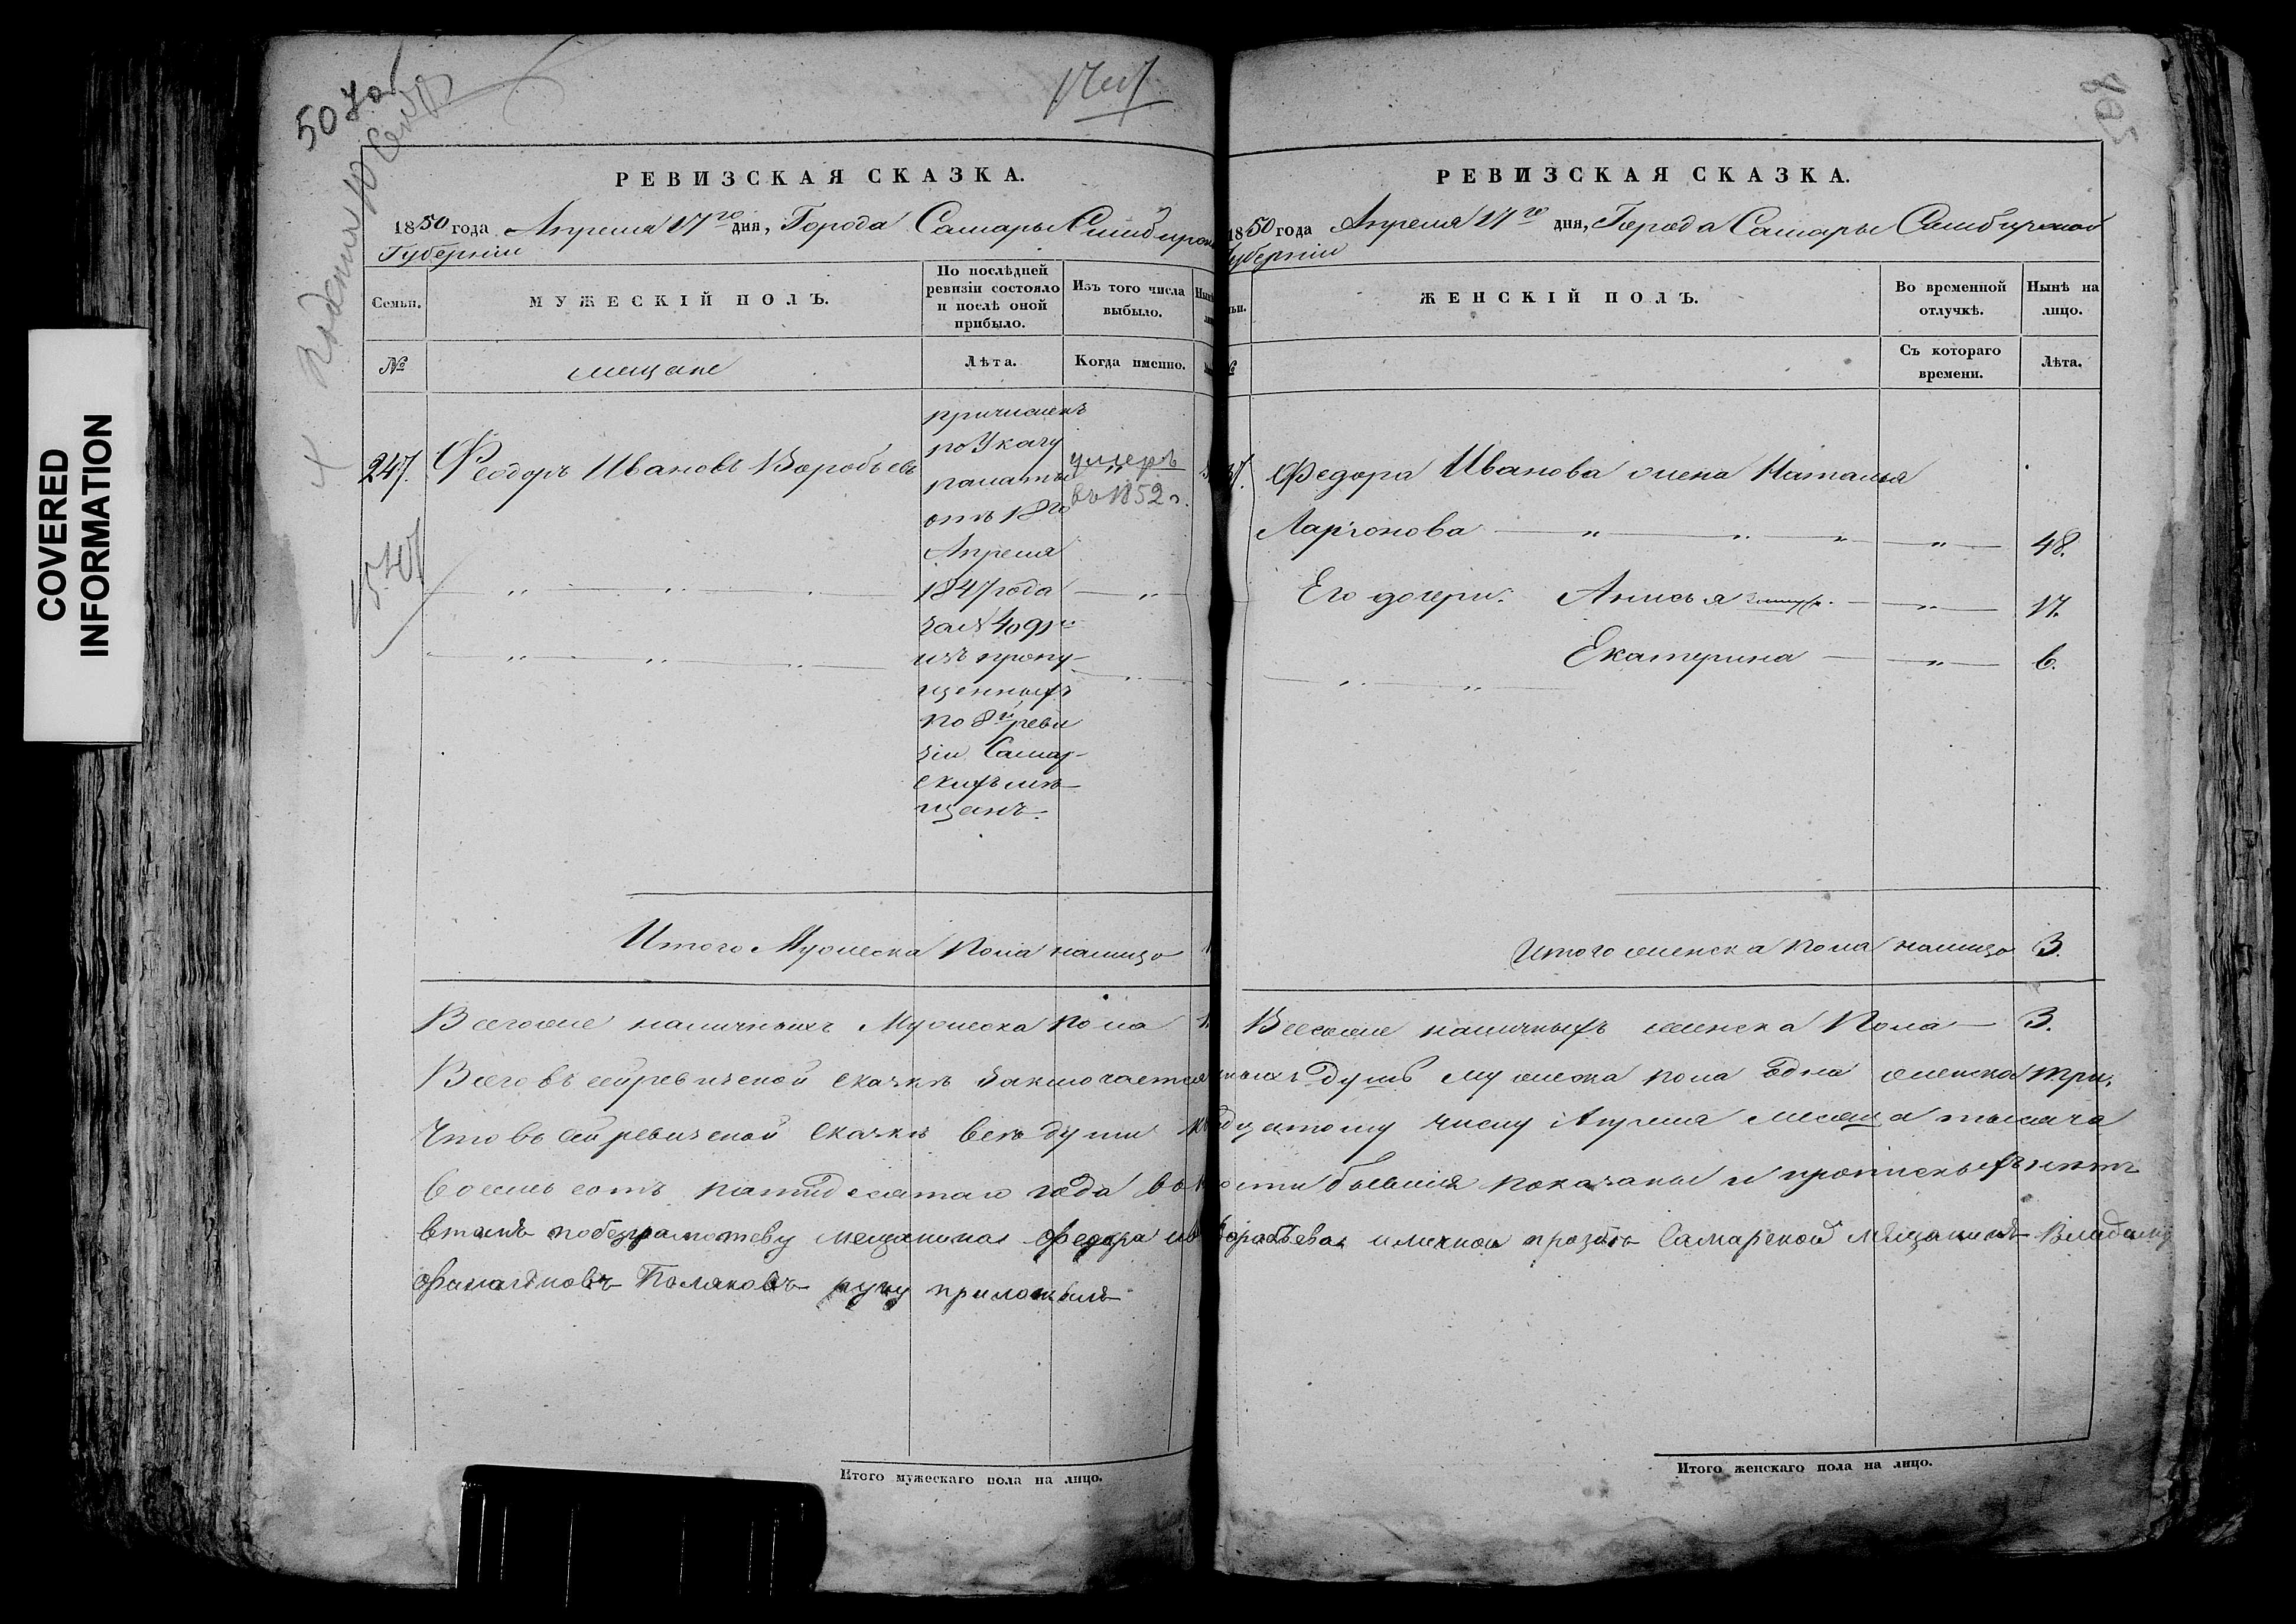 COVERED
INFORMATION
507 об
РЕВИЗСКАЯ СКАЗКА.
1850 года Апреля 17го дня, Города Самары Симбирской
Губернiи
Семьи.
МУЖЕСКIЙ ПОЛЪ.
По послѣдней
ревизiи состояло
и послѣ оной
прибыло.
Изъ того числа
выбыло.
№
мещане
Лѣта.
Когда именно.
247. Феодоръ Ивановъ Воробьевъ
причисленъ
по Указу
палаты
отъ 18го
Апреля
1847 года
за № 4091м
изъ пропу-
щенныхъ
по 8й реви
зiи Самар-
скихъ ме-
щанъ.
умеръ
въ 1852 г.
Итого Мужеска пола налицо 1
Всегоже наличныхъ Мужеска пола 1
Всего въ сей ревизской сказкѣ заключается
Что въ сей ревизской сказкѣ всѣ души
восемь сотъ пятидесятаго года
втомъ побезграмотству мещанина Федора
Поляковъ руку приложилъ
Итого мужескаго пола на лицо.
РЕВИЗСКАЯ СКАЗКА.
1850 года Апреля 17го дня, Города Самары Симбирской
Губернiи
ЖЕНСКIЙ ПОЛЪ.
Во временной
отлучкѣ.
Нынѣ на
лицо.
Съ котораго
времени.
Лѣта.
Федора Иванова жена Наталья
Ларiонова 48.
Его дочери: Анисья 17.
Екатерина 6.
Итого женска пола налицо 3.
Всегоже наличныхъ женска Пола 3.
душъ мужеска пола одна женска три.
числу Апреля месяца тысяча
бывшiя показаны и прописныхъ нетъ
Самарской мещанинъ
Итого женскаго пола на лицо.